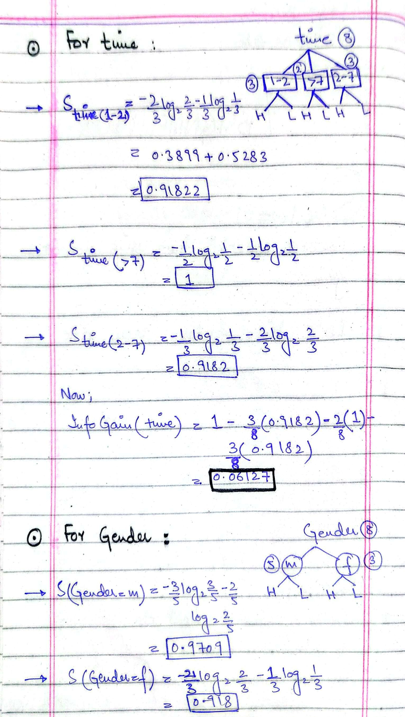 ⊙ For time :
time ⑧
③ 1-2 ② >7 2-7 ③
H L H L H L
→ S time(1-2) = -2/3 log₂ 2/3 - 1/3 log₂ 1/3
= 0.3899 + 0.5283
= 0.91822
→ S time(>7) = -1/2 log₂ 1/2 - 1/2 log₂ 1/2
= 1
→ S time(2-7) = -1/3 log₂ 1/3 - 2/3 log₂ 2/3
= 0.9182
Now;
Info Gain(time) = 1 - 3/8(0.9182) - 2/8(1) -
3/8(0.9182)
= 0.06127
⊙ For Gender :
Gender ⑧
⑤ m f ③
H L H L
→ S(Gender=m) = -3/5 log₂ 3/5 - 2/5
log₂ 2/5
= 0.9709
→ S(Gender=f) = -2/3 log₂ 2/3 - 1/3 log₂ 1/3
= 0.918